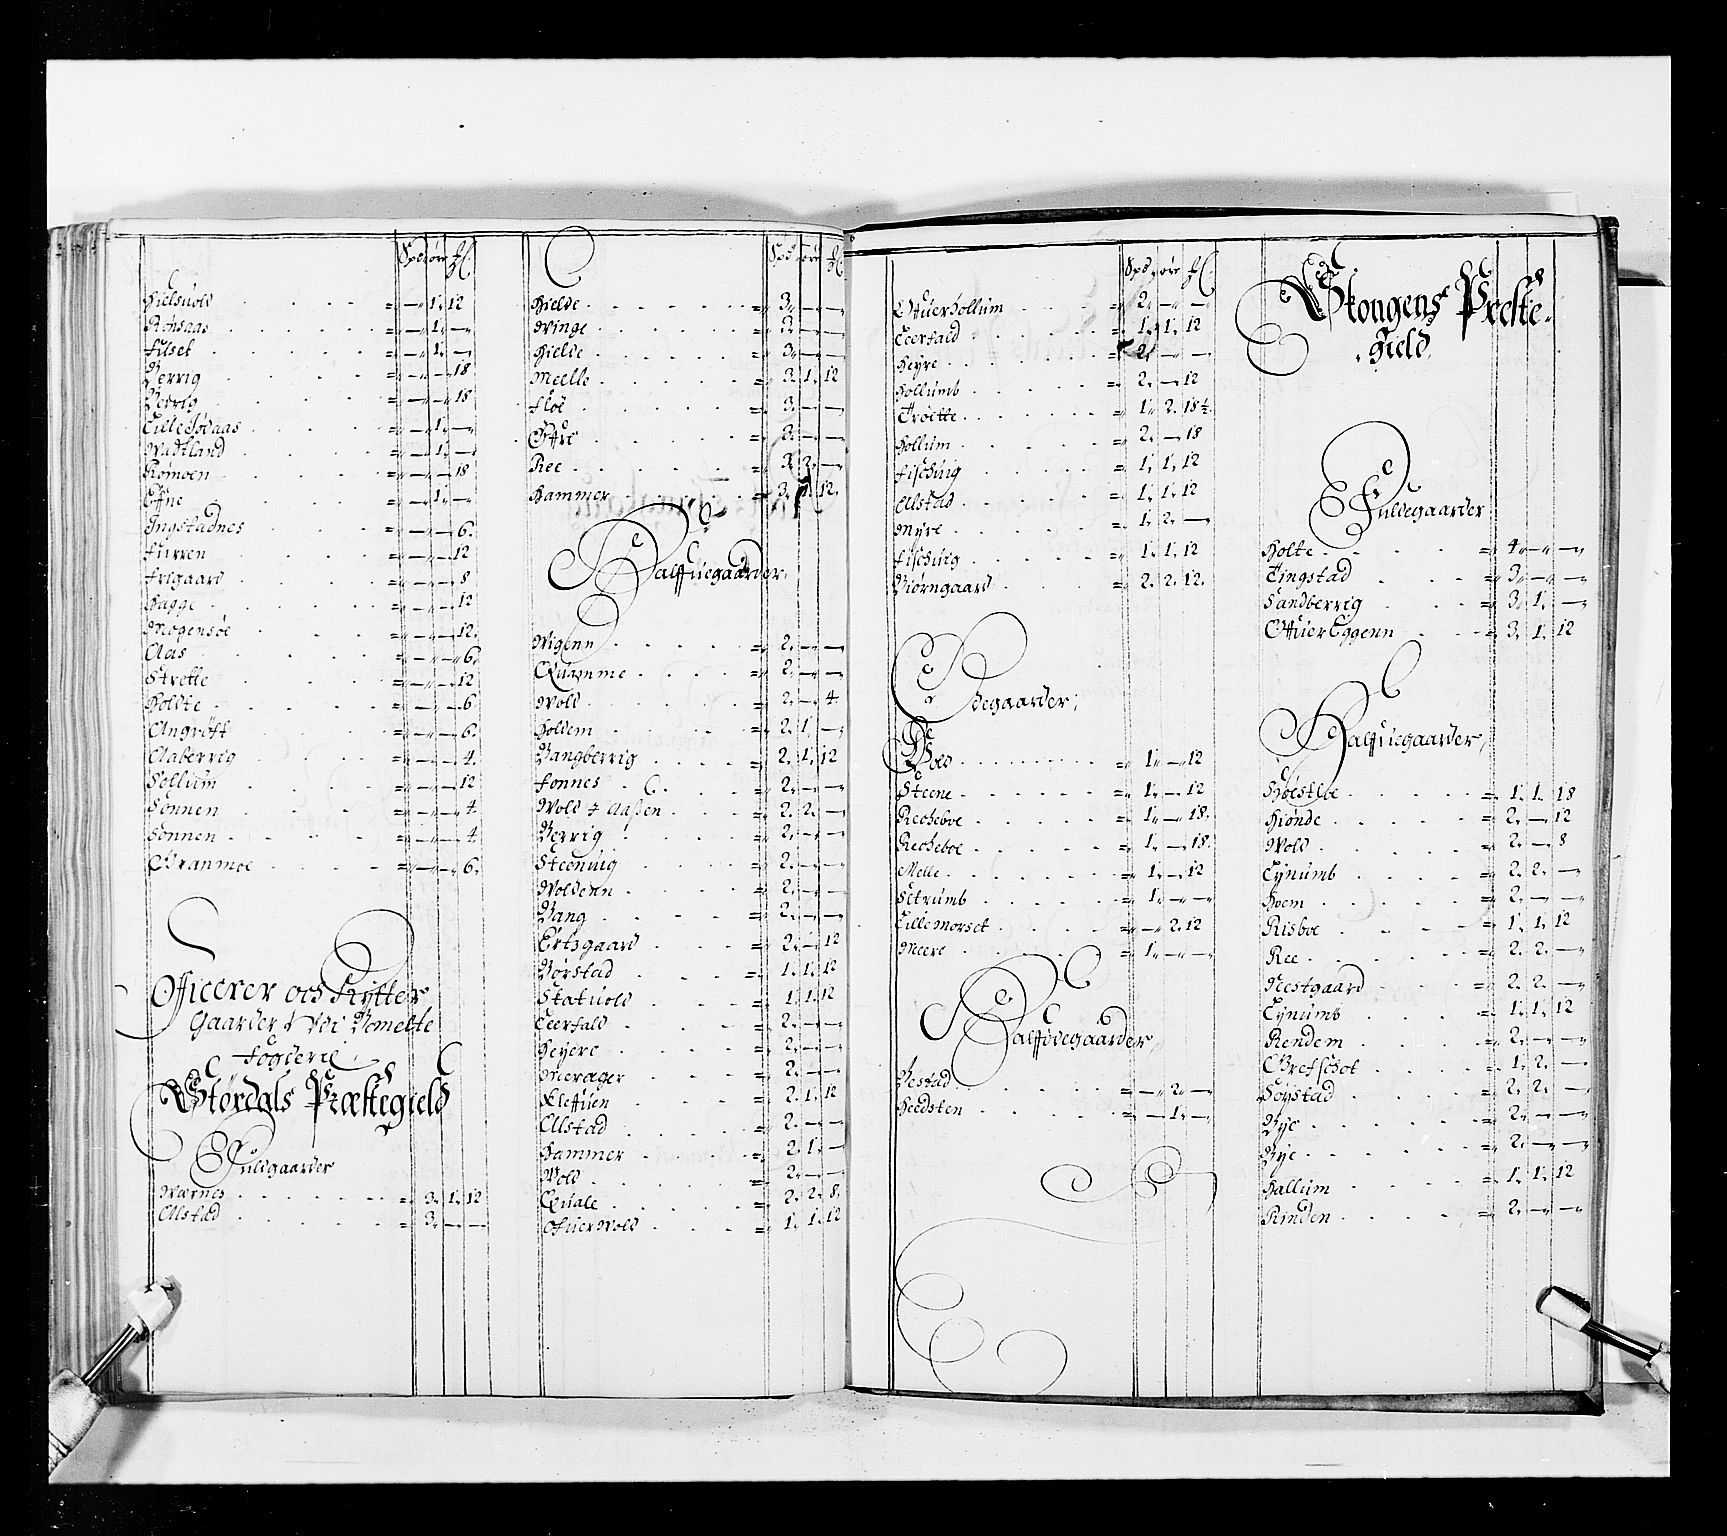 Spd ører
Hielsuold = — 1. 12
Rønsaas = — 1. —
Filset = — 1. —
Berrig = — — 18
Bedrig = — — 18
Lille Sødaas = — 1. —
Wadtland = — 1. —
Rømoen = — — 18
Effne = — 1. —
Ingstadnes = — — 6.
Furren = — — 12
Frigaard = — — 8
Hagge = — — 12
Mogensøe = — — 12.
Aas = — — 6.
Strette = — — 12
Holdte = — — 6
Angröft = — — 6.
Aaberrig = — — 4.
Sollum = — — 12
Sonnen = — — 4.
Sonnen = — — 4
Granmoe = — — 6.
Officerer och Rytter
Gaarder Vdi Bemelte
Fogderie
Størdals Præstegield
Fuldgaarder
Wærnes = 3. 1. 12
Alstad = 3. — —
Spd ører
Hielde = 3. — —
Winge = 3. — —
Hielde = 3. — —
Meelle = 3. 1. 12
Floe = 3. — —
Øffre = 3. — —
Ree = 3. 2. —
Hammer = 3. 1. 12.
Halffuegaarder.
Wigenn = 2. — —
Quamme = 2. — —
Wold = 2. — 4.
Holdem = 2. 1. —
Bangberrig = 2. 1. 12
Fonnes = 2. — —
Wold & Aassen = 2. 2. —
Berrig = 2. — —
Steening = 2. — —
Woldenn = 2. — —
Bang = 2. — —
Ertzgaard = 2. — 12
Børstad = 1. 1. 12
Statuold = 1. 1. 12
Leerfald = 2. — —
Heyere = 2. — —
Meræger = 2. — —
Kleffuen = 2. 1. 12
Alstad = 2. — —
Hammer = 2. 1. —
Wold = 2. — —
Quale = 2. 2. 8.
Ofuerwold = 1. 1. 12
Spd ører
Offuerhollum = 2. — —
Leerfald = 1. 1. 12
Heyre = 2. — —
Hollumb = 2. — 12
Trøette = 1. 2. 18½
Hollum = 2. — 18
Fisching = 1. 1. 12
Alstad = 1. 1. 12
Myre = 1. 2. —
Fisching = 1. 1. 12
Biørngaard = 2. 2. 12.
Ødegaarder,
Hoed = 1. — 12
Steene = 1. — 12
Recheboe = 1. — 18.
Recheboe = 1. — 18
Melle = 1. — 12
Sctrumb = 1. — —
Lillemorset = — 2. 12
Meere = 1. — —
Halffødegaarder,
Bestad = — 2. —
Heedsten = — 1. —
Skongens Preste-
Gield.
Fuldegaarder
Holte = 4. — —
Tingstad = 3. — —
Sandberrig = 3. 1. —
Offuer Eggenn = 3. 1. 12
Halffuegaarder,
Høestoe = 1. 1. 18
Hionde = 2. — 12
Wold = 2. — 8
Lynumb = 2. 2. —
Hoem = 2. — —
Risboe = 1. 1. 12
Ree = 2. 2. —
Nestgaard = 2. 2. —
Lynumb = 1. 1. 12
Rendem = 2. — —
Grefschot = 1. 2. —
Soystad = 2. 2. —
Bye = 2. — —
Bye = 2. — —
Hallum = 1. 1. 12
Rinden = 2. — —